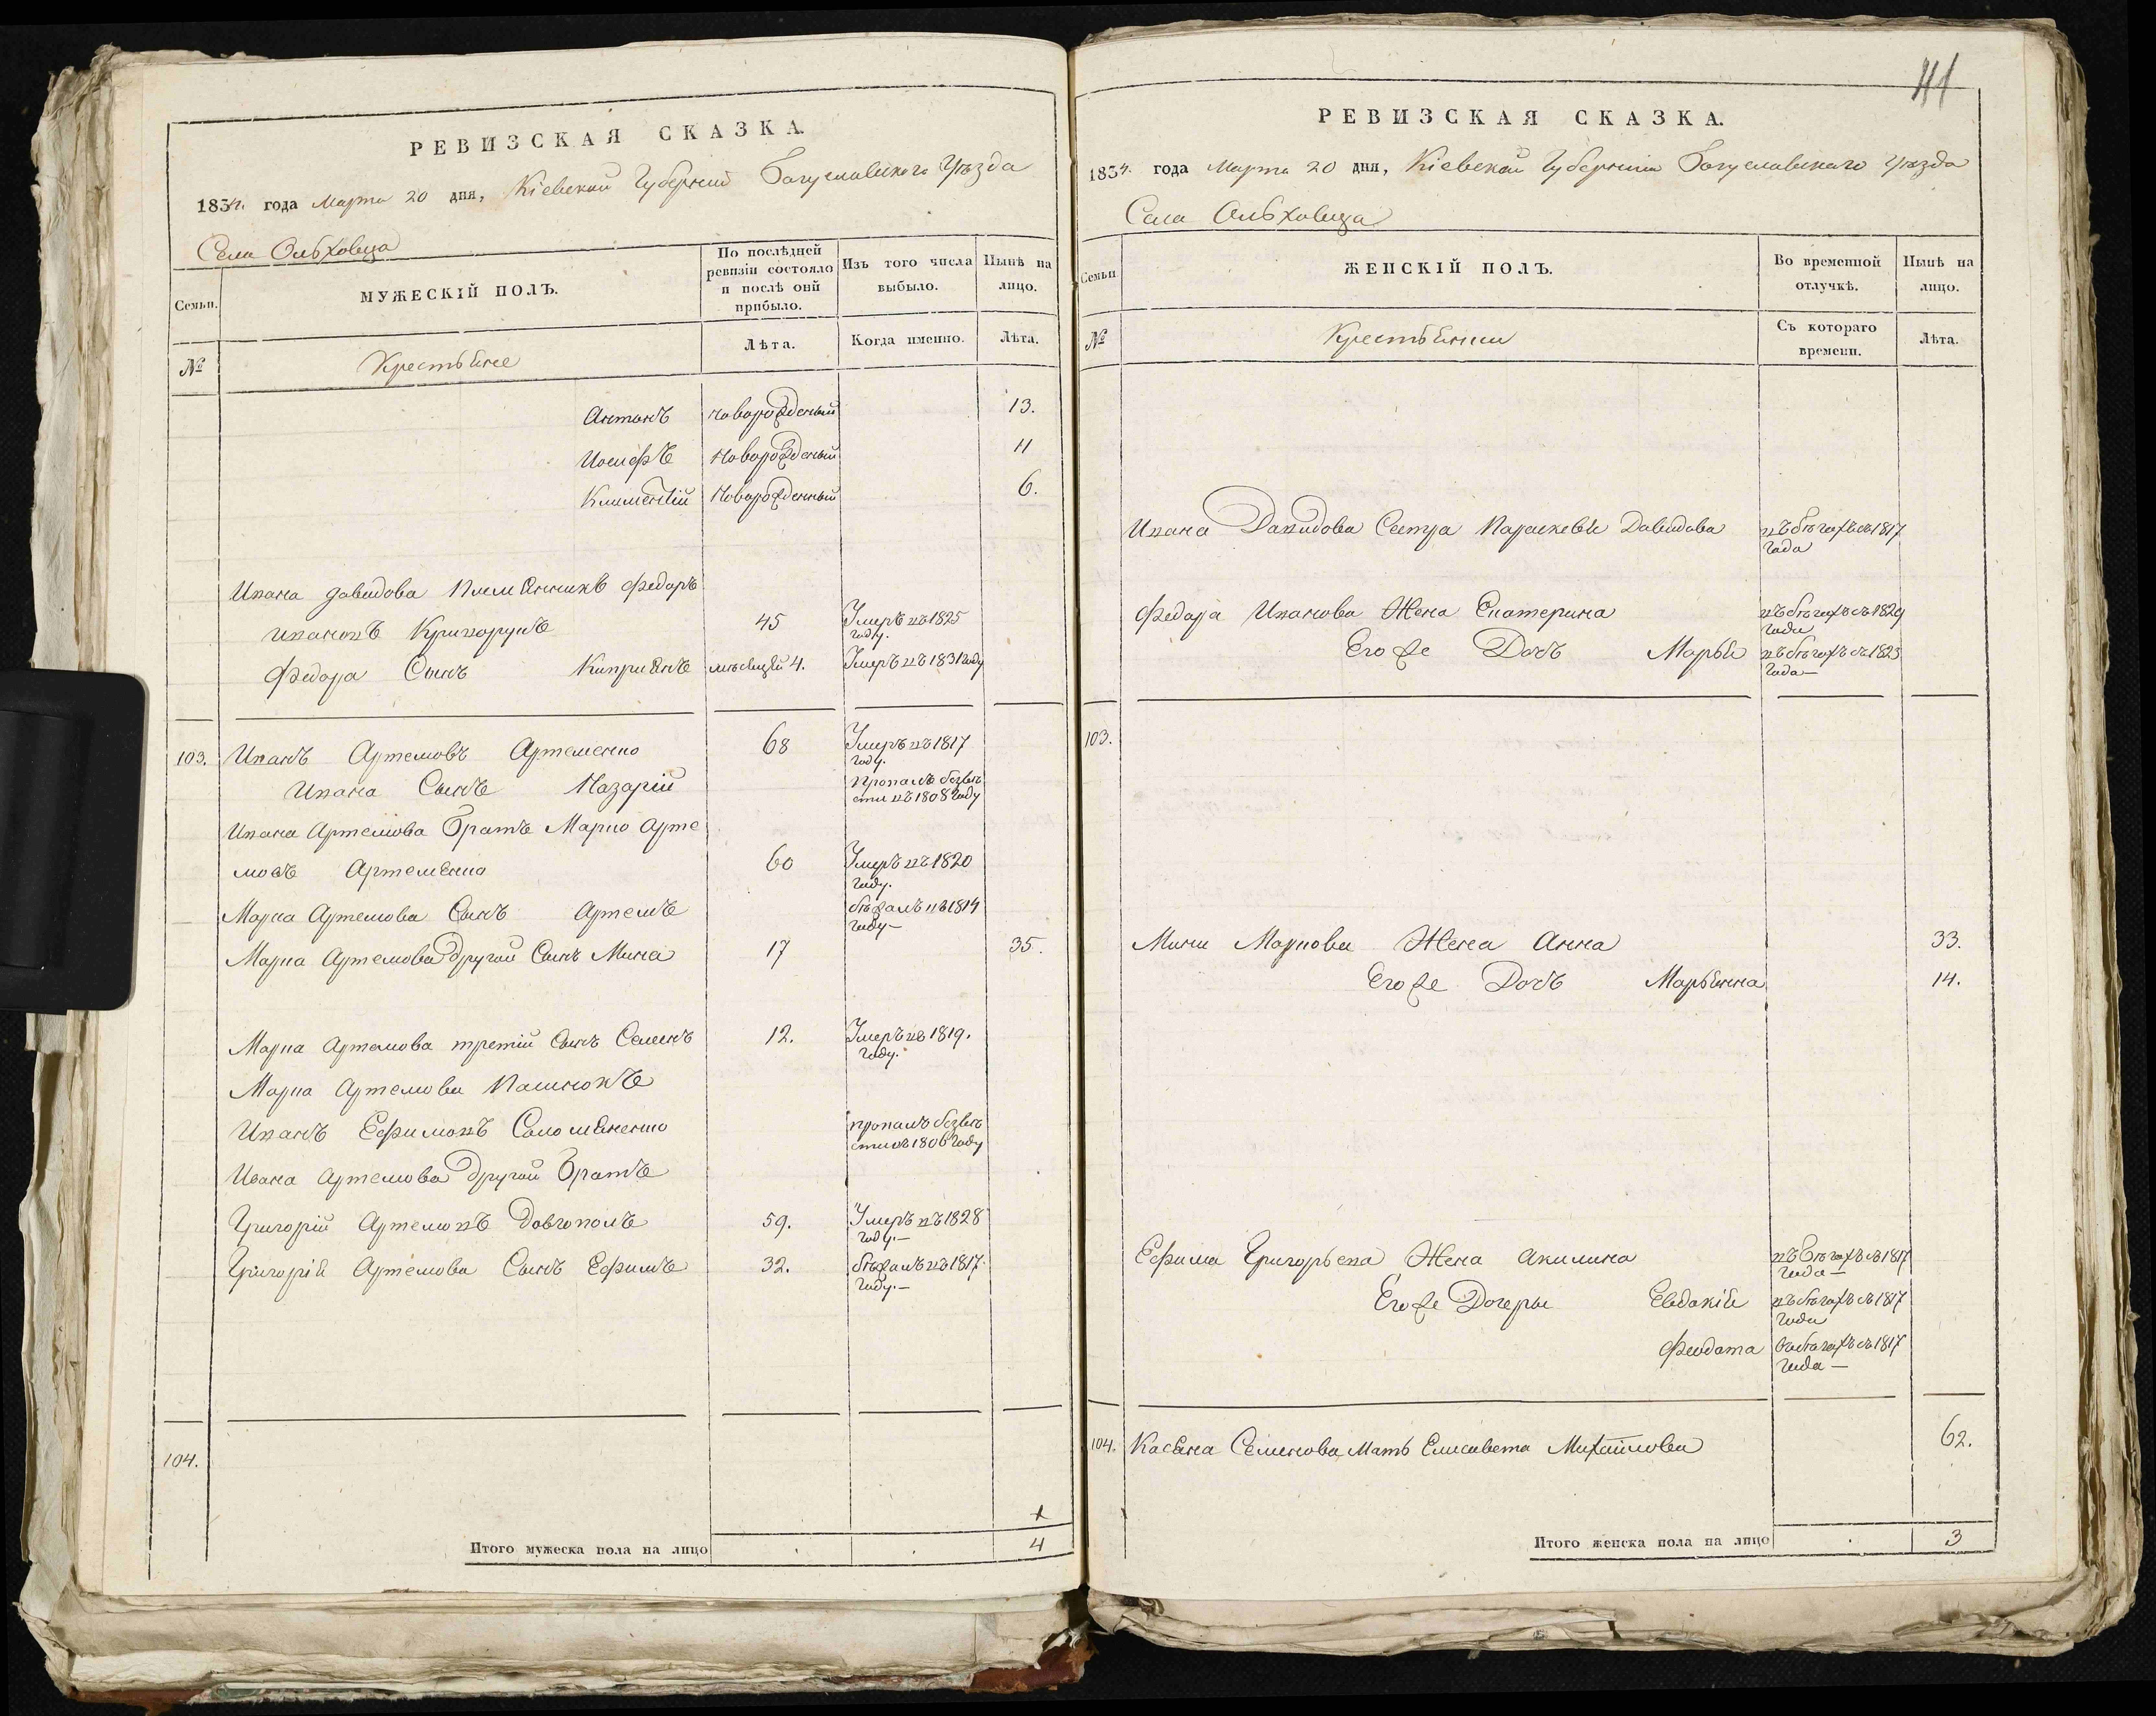 РЕВИЗСКАЯ СКАЗКА.
1834. года Марта 20 дня, Кіевской Губерніи Богуславского Уѣзда
Села Ольховца
Семьи.
МУЖЕСКІЙ ПОЛЪ.
По послѣдней ревизіи состояло и послѣ онй прибыло.
Изъ того числа выбыло.
Нынѣ на лицо.
№
Крестьяне
Лѣта.
Когда именно.
Лѣта.
Антонъ новорожденый 13.
Иосифъ Новорожденый 11
Климентій Новорожденный 6.
Ивана давидова Племянникъ Федоръ
ивановъ Криворукъ 45 Умеръ въ 1825
году.
Федора Сынъ Киприянъ мѣсяцей 4. Умеръ въ 1831 году
103. Иванъ Артемовъ Артеменко 68 Умеръ въ 1817
году.
Ивана Сынъ Назарій пропалъ безвѣ
сти въ 1808 году
Ивана Артемова Братъ Марко Арте
мовъ Артеменко 60 Умеръ въ 1820
году.
Марка Артемова Сынъ Артемъ бѣжалъ въ 1814
году —
Марка Артемова другой Сынъ Мина 17 35.
Марка Артемова третій Сынъ Семенъ 12. Умеръ въ 1819.
году.
Марка Артемова Пасынокъ
Иванъ Ефимовъ Соломяненко пропалъ безвѣ
сти въ 1806 году
Ивана Артемова другой Братъ
Григорій Артемовъ Довгополъ 59. Умеръ въ 1828
году. —
Григорія Артемова Сынъ Ефимъ 32. бѣжалъ въ 1817.
году. —
104.
Итого мужеска пола на лицо 4
РЕВИЗСКАЯ СКАЗКА.
1834. года Марта 20 дня, Кіевской Губерніи Богуславскаго Уѣзда
Села Ольховца
Семьи
ЖЕНСКІЙ ПОЛЪ.
Во временной отлучкѣ.
Нынѣ на лицо.
№
Крестьянки
Съ котораго времени.
Лѣта.
Ивана Давидова Сестра Параскевія Давидова въ бѣгахъ съ 1817
года
Федора Иванова Жена Екатерина въ бѣгахъ съ 1829
года
Его же Дочь Марья въ бѣгахъ съ 1823
года —
103.
Мины Маркова Жена Анна 33.
Его же Дочь Марьянна 14.
Ефима Григорьева Жена Акилина въ бѣгахъ съ 1817
года —
Его же Дочеры Евдокія въ бѣгахъ съ 1817
года
Феодота въ бѣгахъ съ 1817
года —
104. Касяна Семенова Мать Елисавета Михайлова 62.
Итого женска пола на лицо 3